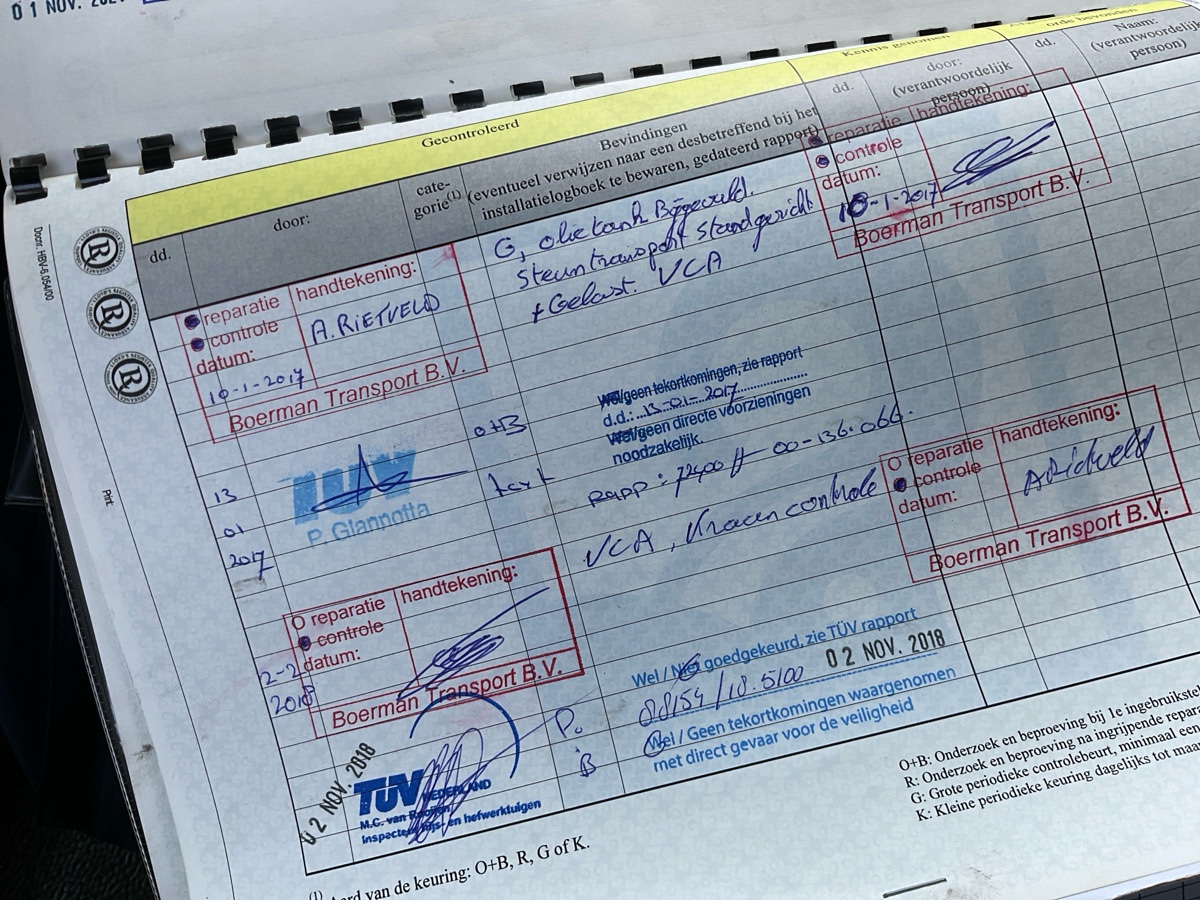 0 1 NOV. 202
Gecontroleerd
Kennis genomen
dd.
door:
cate-
gorie(1)
Bevindingen
(eventueel verwijzen naar een desbetreffend bij het
installatielogboek te bewaren, gedateerd rapport)
dd.
door:
(verantwoordelijk
persoon)
dd.
Naam:
(verantwoordelijk
persoon)
Docnr. HBV-6.054/00
Print
reparatie
controle
datum:
10-1-2017
handtekening:
A. RIETVELD
Boerman Transport B.V.
G, olietank Bijgevuld.
steun transport stand gericht
+ Gelast. VCA
reparatie
controle
datum:
10-1-2017
handtekening:
Boerman Transport B.V.
13
01
2017
TÜV
P. Giannotta
O+B
Wel/geen tekortkomingen, zie rapport
d.d.: 13-01-2017
Wel/geen directe voorzieningen
noodzakelijk.
rapp: 72400 00-136.066.
VCA, Kraan controle
O reparatie
controle
datum:
handtekening:
A Rietveld
Boerman Transport B.V.
2-2
2018
O reparatie
controle
datum:
handtekening:
Boerman Transport B.V.
0 2 NOV. 2018
TÜV NEDERLAND
M.C. van
Inspecteur hijs- en hefwerktuigen
P.
B
Wel / Niet goedgekeurd, zie TÜV rapport
88154/18.5100
0 2 NOV. 2018
Wel / Geen tekortkomingen waargenomen
met direct gevaar voor de veiligheid
O+B: Onderzoek en beproeving bij 1e ingebruikstel
R: Onderzoek en beproeving na ingrijpende repara
G: Grote periodieke controlebeurt, minimaal een
K: Kleine periodieke keuring dagelijks tot maa
(1) Aard van de keuring: O+B, R, G of K.